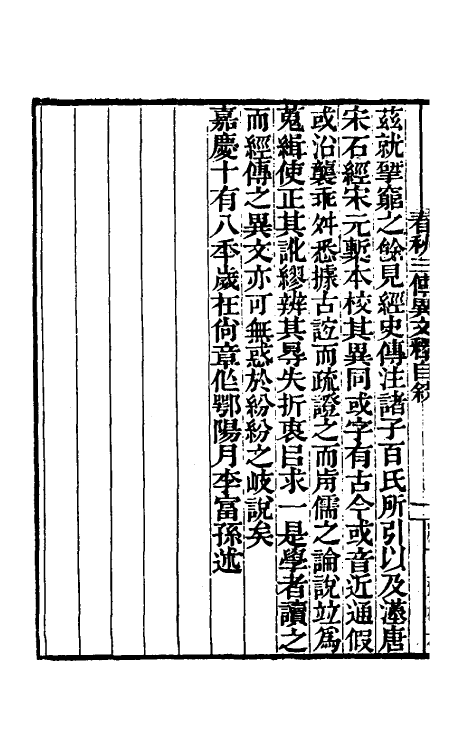 春秋三傳異文釋自敘
茲就揅窮之餘見經史傳注諸子百氏所引以及漢唐
宋石經宋元槧本校其異同或字有古今或音近通假
或沿襲乖舛悉據古誼而疏證之而前儒之論說竝爲
蒐緝使正其訛繆辨其㝵失折衷㠯求一是學者讀之
而經傳之異文亦可無惑於紛紛之岐說矣
嘉慶十有八秊歲在尚章作鄂陽月李富孫述